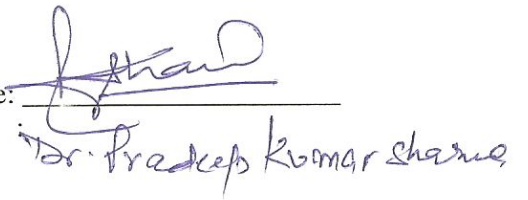 e:
Dr. Pradeep Kumar sharma